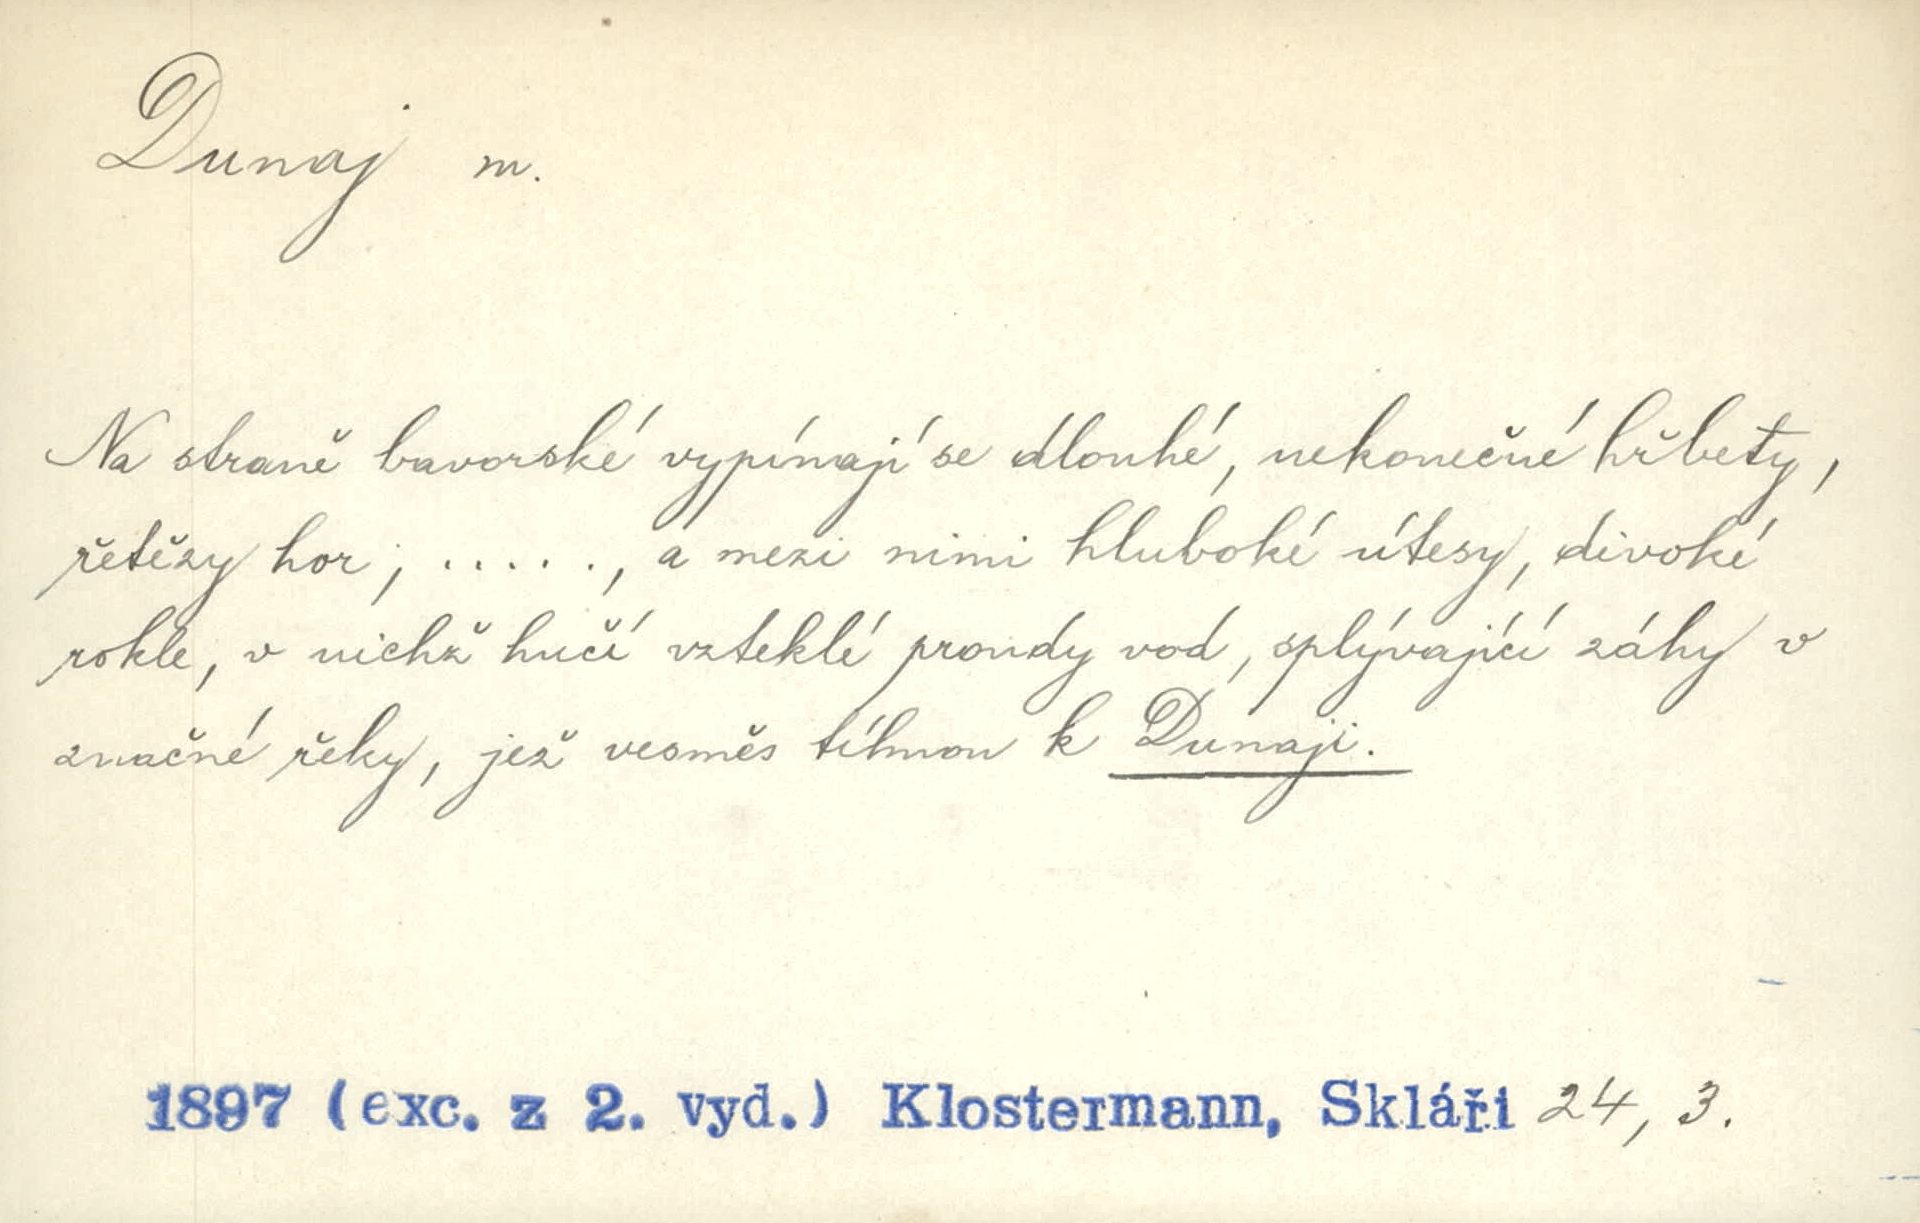 Dunaj m.
Na straně bavorské vypínají se dlouhé, nekonečné hřbety,
řetězy hor; ....., a mezi nimi hluboké útesy, divoké
rokle, v nichž hučí vzteklé proudy vod, splývající záhy v
značné řeky, jež vesměs tíhnou k Dunaji.
1897 (exc. z 2. vyd.) Klostermann, Skláři 24, 3.